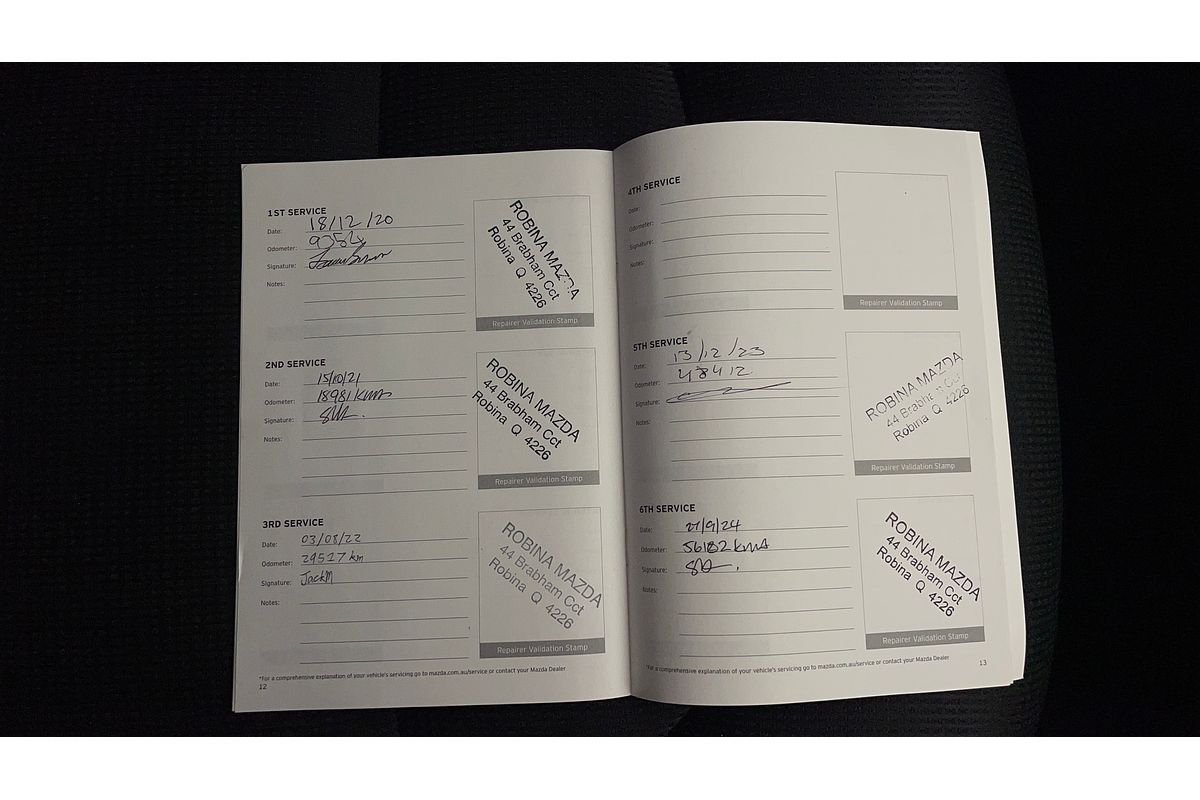 1ST SERVICE
Date: 18/12/20
Odometer: 9354
Signature:
Notes:
ROBINA MAZDA
44 Brabham Cct
Robina Q 4226
Repairer Validation Stamp
2ND SERVICE
Date: 15/10/21
Odometer: 18981 kms
Signature:
Notes:
ROBINA MAZDA
44 Brabham Cct
Robina Q 4226
Repairer Validation Stamp
3RD SERVICE
Date: 03/08/22
Odometer: 29527 km
Signature: JackM
Notes:
ROBINA MAZDA
44 Brabham Cct
Robina Q 4226
Repairer Validation Stamp
*For a comprehensive explanation of your vehicle's servicing go to mazda.com.au/service or contact your Mazda Dealer
12
4TH SERVICE
Date:
Odometer:
Signature:
Notes:
Repairer Validation Stamp
5TH SERVICE
Date: 13/12/23
Odometer: 48412
Signature:
Notes:
ROBINA MAZDA
44 Brabham Cct
Robina Q 4226
Repairer Validation Stamp
6TH SERVICE
Date: /9/24
Odometer: 56182 kms
Signature:
Notes:
ROBINA MAZDA
44 Brabham Cct
Robina Q 4226
Repairer Validation Stamp
*For a comprehensive explanation of your vehicle's servicing go to mazda.com.au/service or contact your Mazda Dealer
13